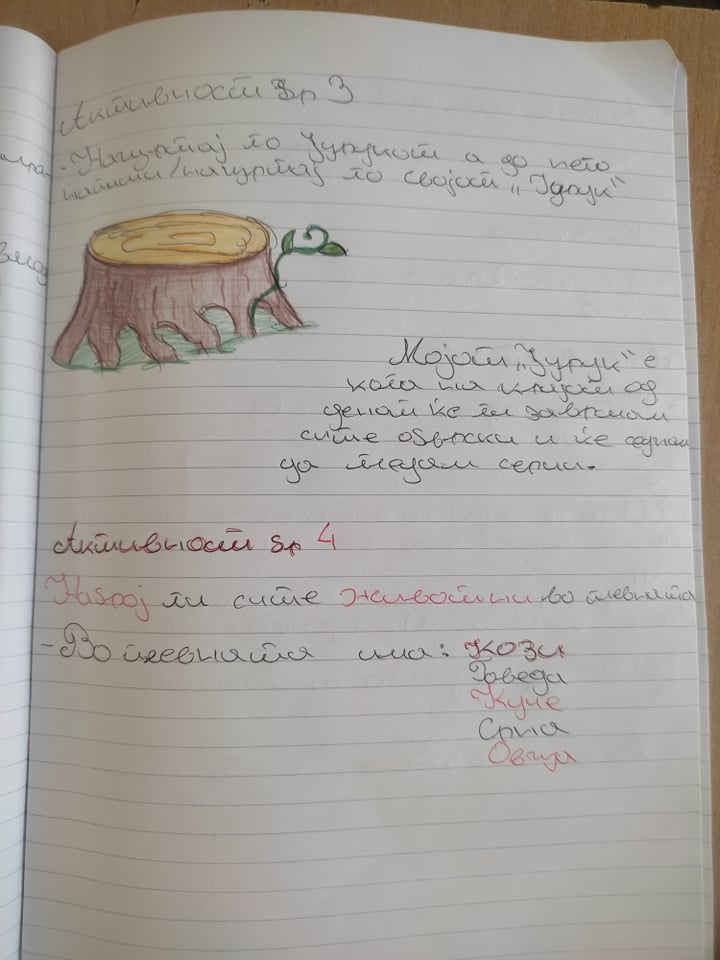 Активност бр 3
- Нацртај го Зурукот а до него
напиши/нацртај го својот „Здрук“
Мојот „Зурук“ е
кога на крајот од
денот ќе ги завршам
сите обврски и ќе седнам
да гледам серии.
Активност бр 4
Наброј ги сите животни во плевната
- Во плевната има: Кози
Говеда
Куче
Срна
Овци